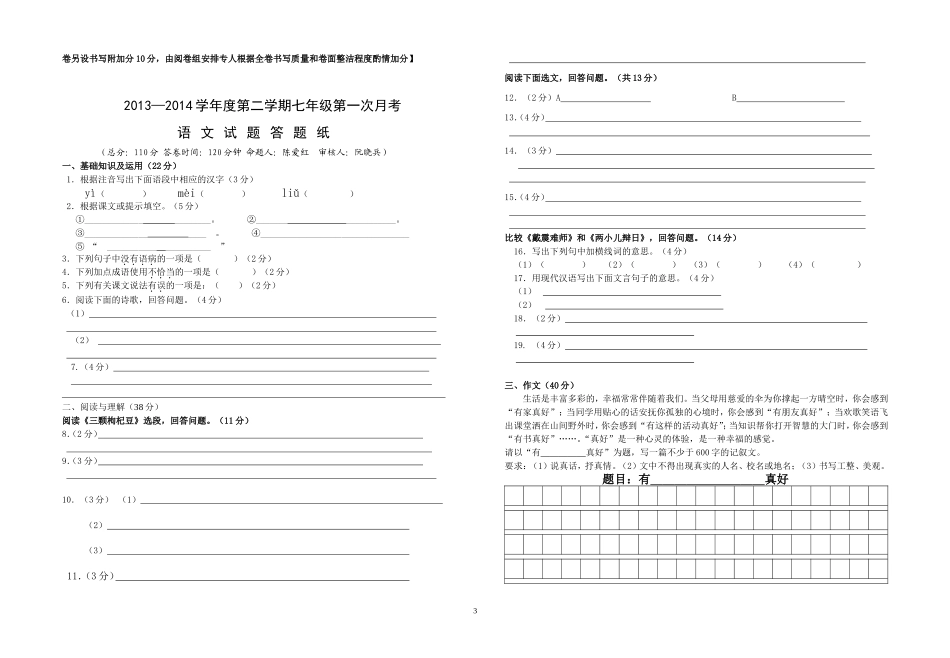 卷另设书写附加分 10 分，由阅卷组安排专人根据全卷书写质量和卷面整洁程度酌情加分】
2013—2014 学年度第二学期七年级第一次月考
语 文 试 题 答 题 纸
（总分：110 分 答卷时间：120 分钟 命题人：陈爱红 审核人：阮晓兵）
一、基础知识及运用（22 分）
1. 根据注音写出下面语段中相应的汉字（3 分）
yì（ ） mèi（ ） liǔ（ ）
2. 根据课文或提示填空。（5 分）
①____________________。 ②____________________。
③____________________。 ④____________________
⑤“____________________”
3. 下列句子中没有语病的一项是（ ）（2 分）
4. 下列加点成语使用不恰当的一项是（ ）（2 分）
5. 下列有关课文说法有误的一项是：（ ）（2 分）
6. 阅读下面的诗歌，回答问题。（4 分）
（1）____________________
（2）____________________
7.（4 分）____________________
二、阅读与理解（38 分）
阅读《三颗枸杞豆》选段，回答问题。（11 分）
8.（2 分）____________________
9.（3 分）____________________
10.（3 分）（1）____________________
（2）____________________
（3）____________________
11.（3 分）____________________
阅读下面选文，回答问题。（共 13 分）
12.（2 分）A____________________ B____________________
13.（4 分）____________________
14.（3 分）____________________
15.（4 分）____________________
比较《戴震难师》和《两小儿辩日》，回答问题。（14 分）
16. 写出下列句中加横线词的意思。（4 分）
（1）（ ） （2）（ ） （3）（ ） （4）（ ）
17. 用现代汉语写出下面文言句子的意思。（4 分）
（1）____________________
（2）____________________
18.（2 分）____________________
19.（4 分）____________________
三、作文（40 分）
生活是丰富多彩的，幸福常常伴随着我们。当父母用慈爱的伞为你撑起一方晴空时，你会感到
“有家真好”；当同学用贴心的话安抚你孤独的心境时，你会感到“有朋友真好”；当欢歌笑语飞
出课堂洒在山间野外时，你会感到“有这样的活动真好”；当知识帮你打开智慧的大门时，你会感到
“有书真好”……。“真好”是一种心灵的体验，是一种幸福的感觉。
请以“有__________真好”为题，写一篇不少于 600 字的记叙文。
要求：（1）说真话，抒真情。（2）文中不得出现真实的人名、校名或地名；（3）书写工整、美观。
题目：有____________________真好
3